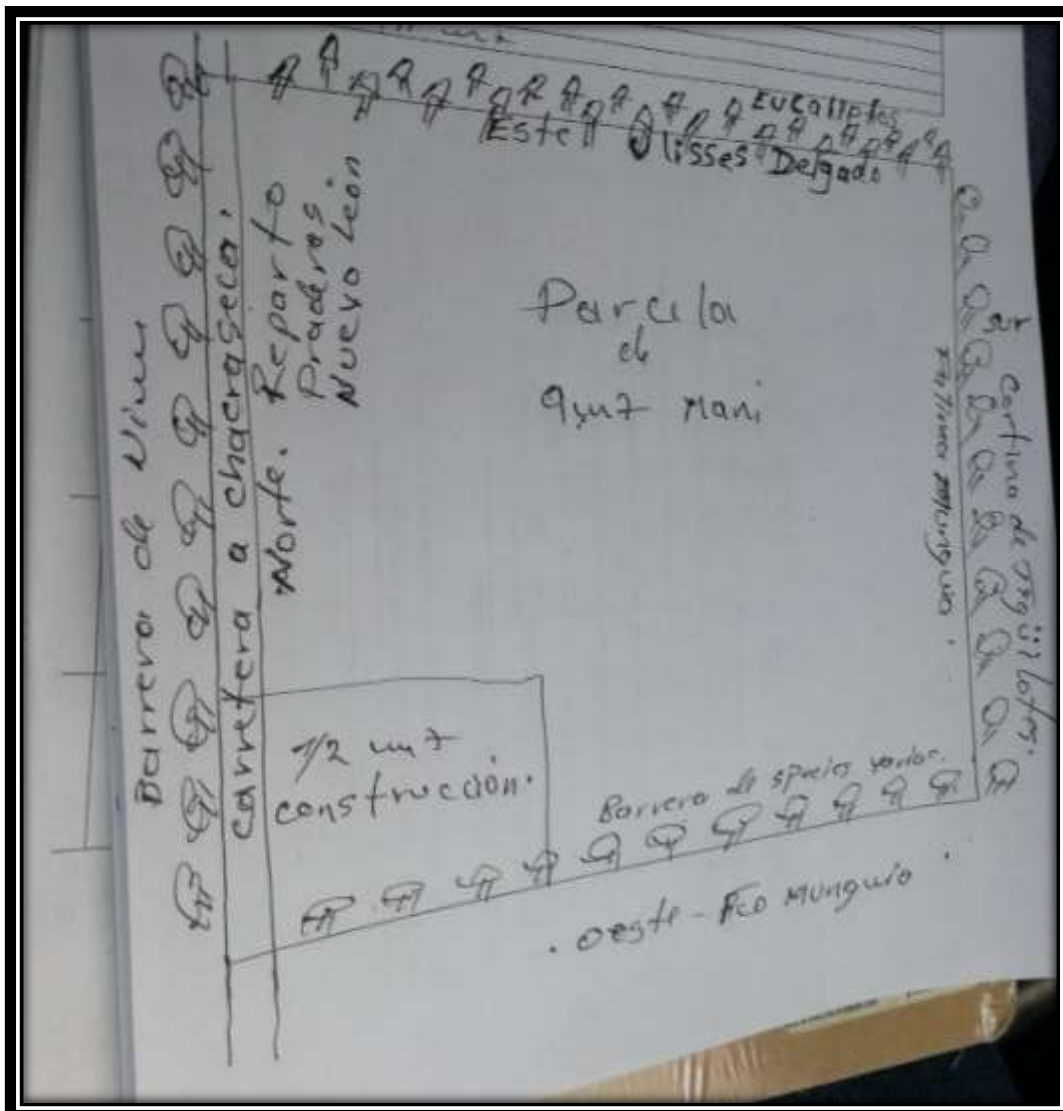 Eucaliptos
Este Ulisses Delgado
Barrera de Nim
carretera a chacraseca.
Norte. Reparto
Praderas
Nuevo León
Parcela
de
9 mz Mani
Cortina de
Munguia.
1/2 mz
construcción.
Barrera de species varios.
. oeste - Fco Munguia .